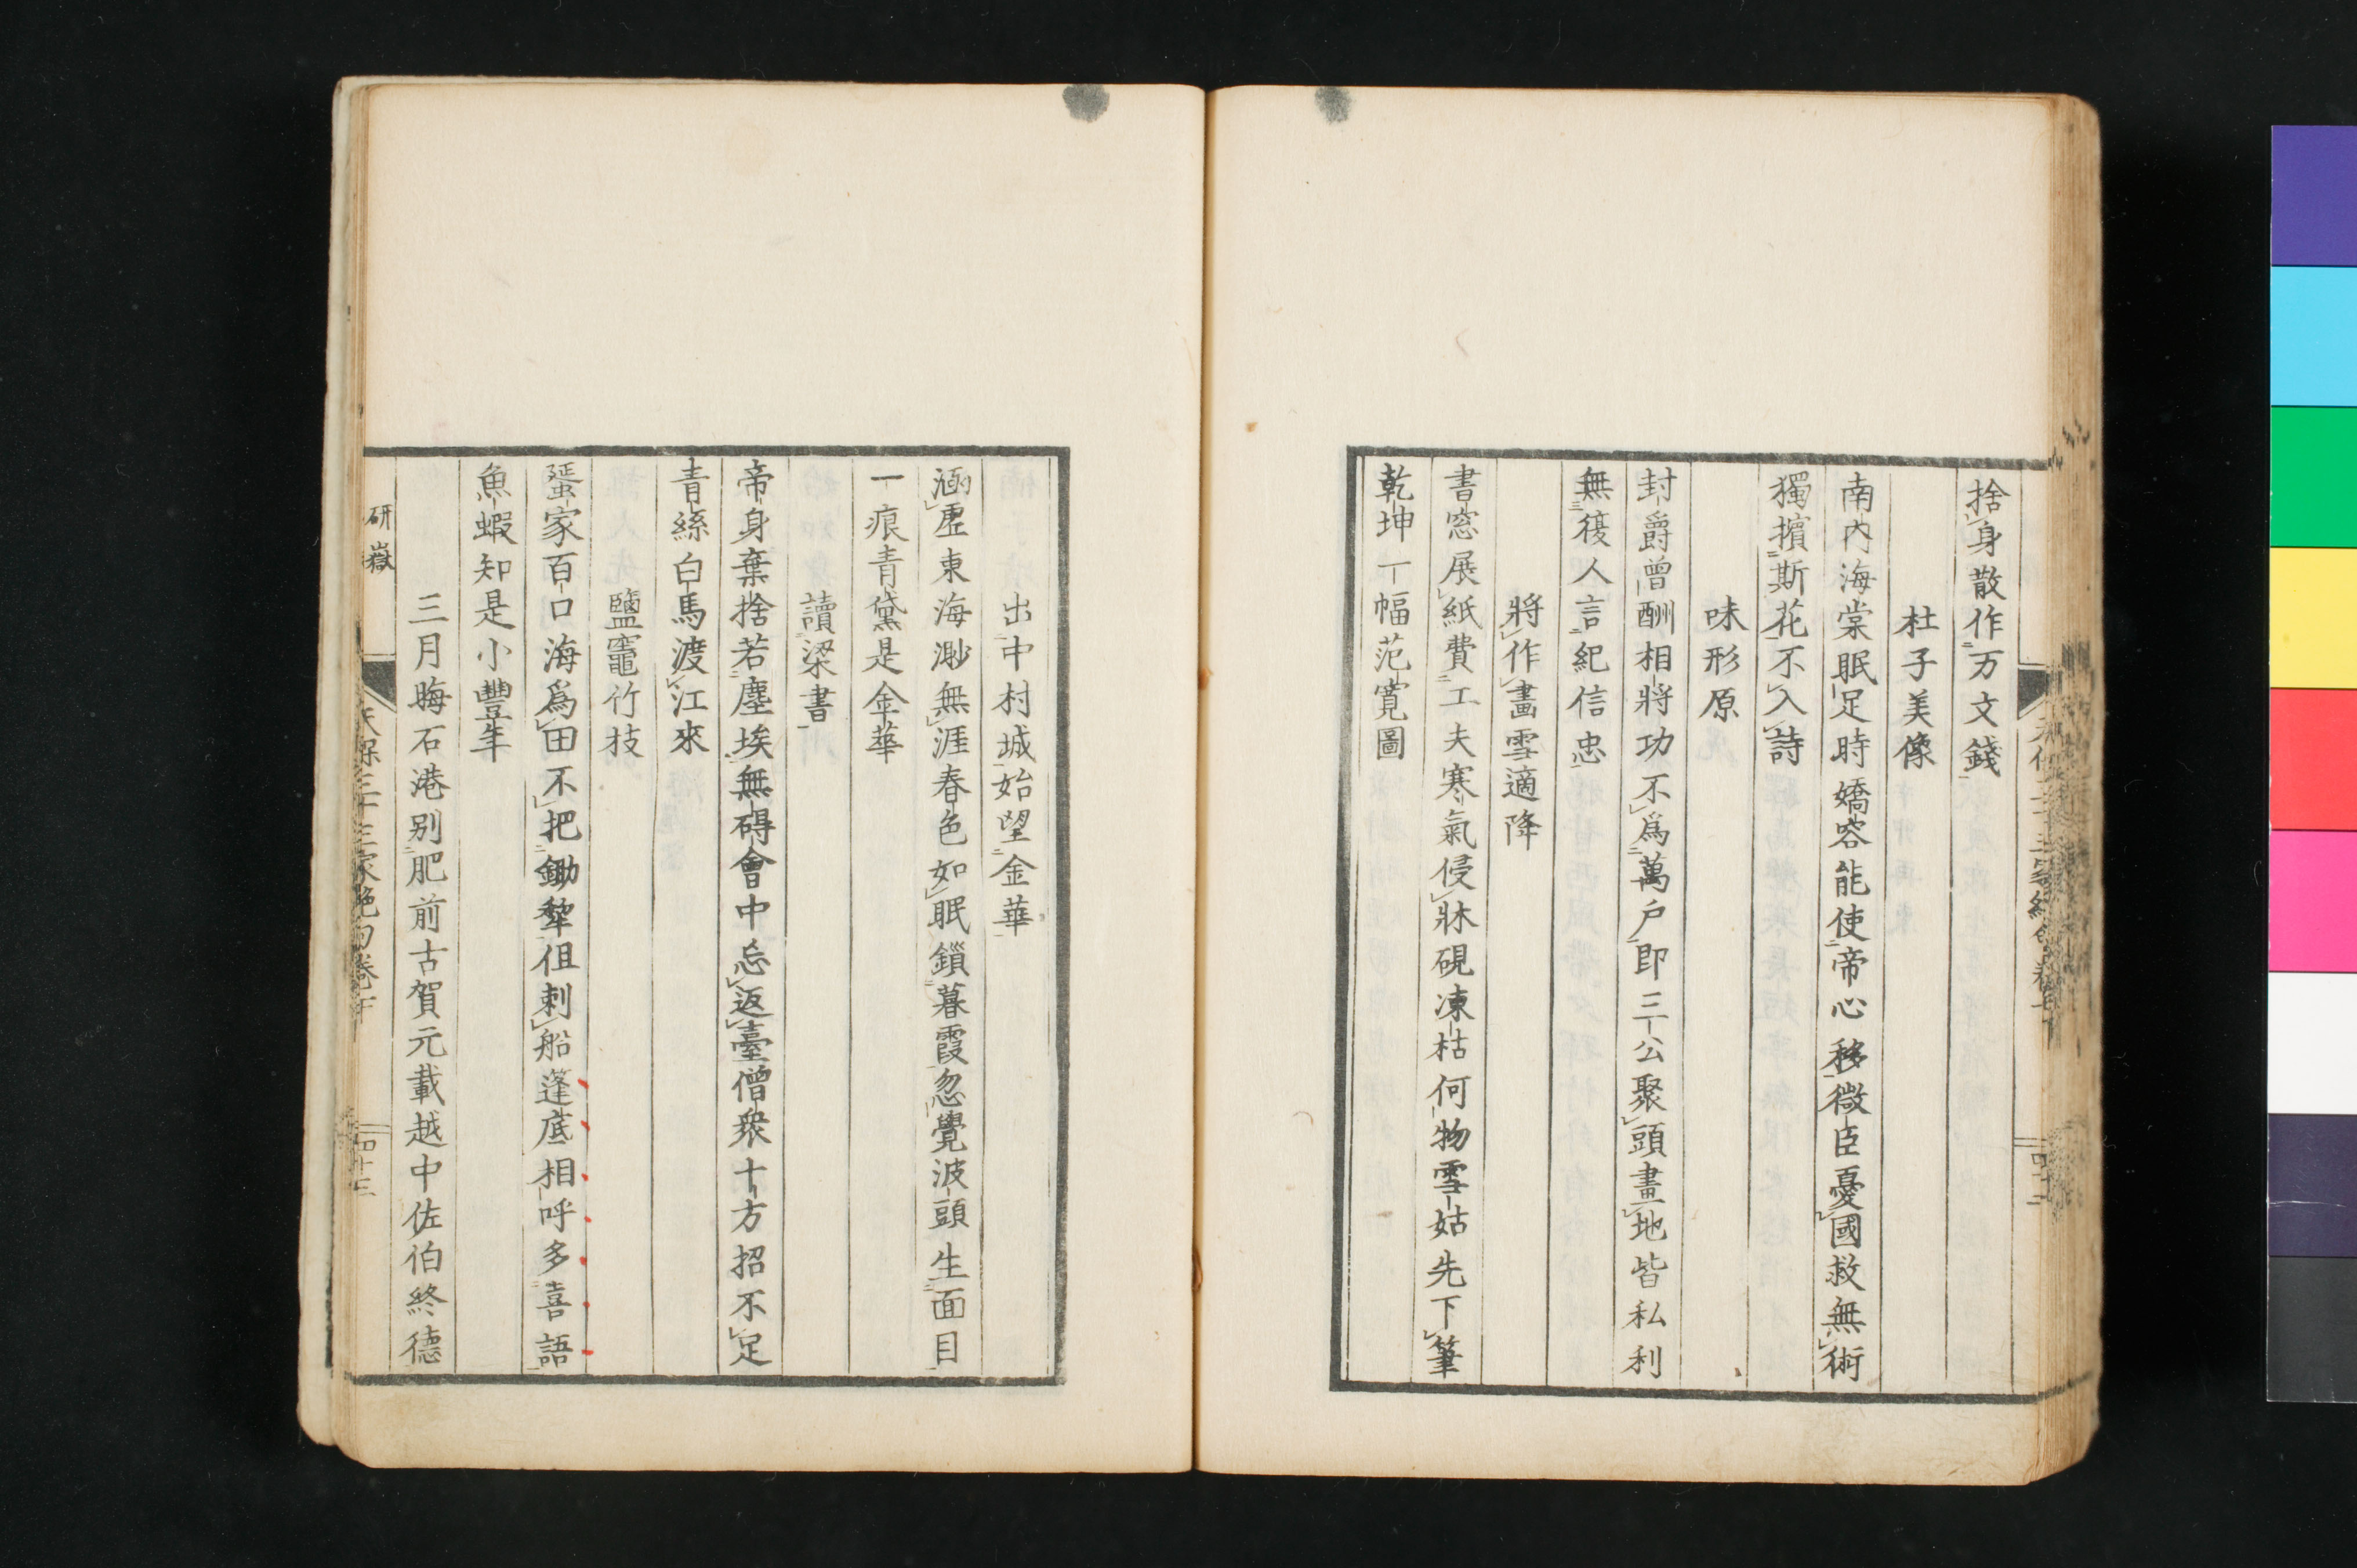 捨身散作万文錢
杜子美像
南內海棠眠足時嬌容能使帝心移微臣憂國救無術
獨擯斯花不入詩
味形原
封爵曾酬相將功不爲萬戶即三公聚頭畫地皆私利
無復人言紀信忠
將作畫雪適降
書窓展紙費工夫寒氣侵牀硯凍枯何物雪姑先下筆
乾坤一幅范寛圖
出中村城始望金華
涵虛東海渺無涯春色如眠鎖暮霞忽覺波頭生面目
一痕青黛是金華
讀梁書
帝身棄捨若塵埃無碍會中忘返臺僧衆十方招不足
青絲白馬渡江來
鹽竈竹枝
蜑家百口海爲田不把鋤犂但刺船蓬底相呼多喜語
魚蝦知是小豐年
三月晦石港別肥前古賀元載越中佐伯終德
研嶽
天保三十三家絶句卷下
四十三